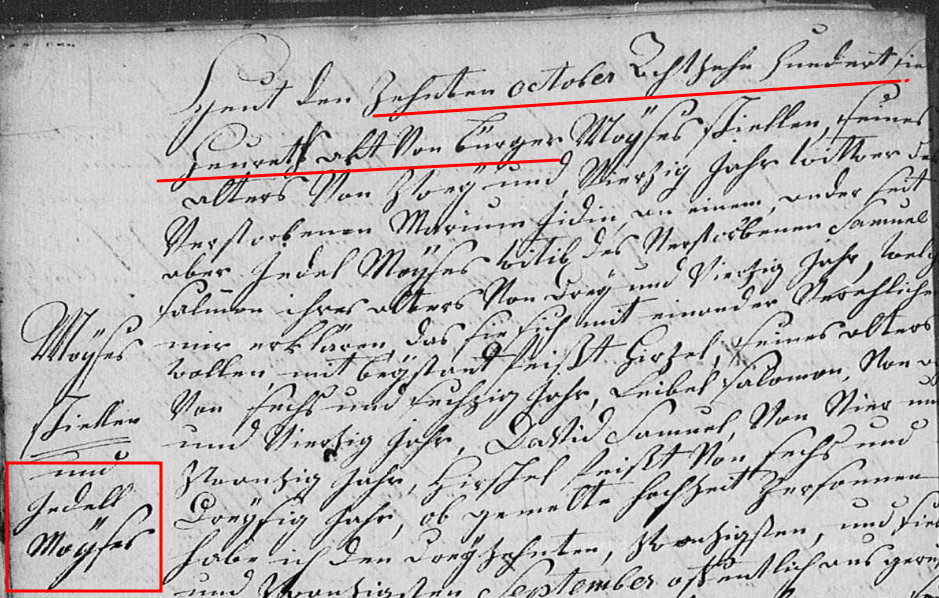 Heut den Zehnten october Achtzehn Hundert
Heurathsakt Von bürger Moÿses stiellen, seines
alters Von Zweÿ und Vierzig Jahr wittver
Verstorbenen Mariun Jidin, an einem, ander seit
aber Jedel Moÿses witib des Verstorbenen Samuel
Salmon ihres alters Von dreÿ und Vierzig Jahr, welch
mir erklären das sie sich mit einander Verehliche
wollen, mit beÿstant seißt Hirzel, seines alters
Von sechs und sechzig Jahr, Leibel Salomon, Von
und Vierzig Jahr, David Samuel, Von Vier und
Zwanzig Jahr, Hirschel seißt Von sechs und
Dreÿsig Jahr, ob gemelte hochzeit Persohnen
habe ich den dreÿzehnten, Zwanzigsten, und sieb
und Zwanzigsten September offentlich aus
Moÿses
stiellen
und
Jedel
Moÿses